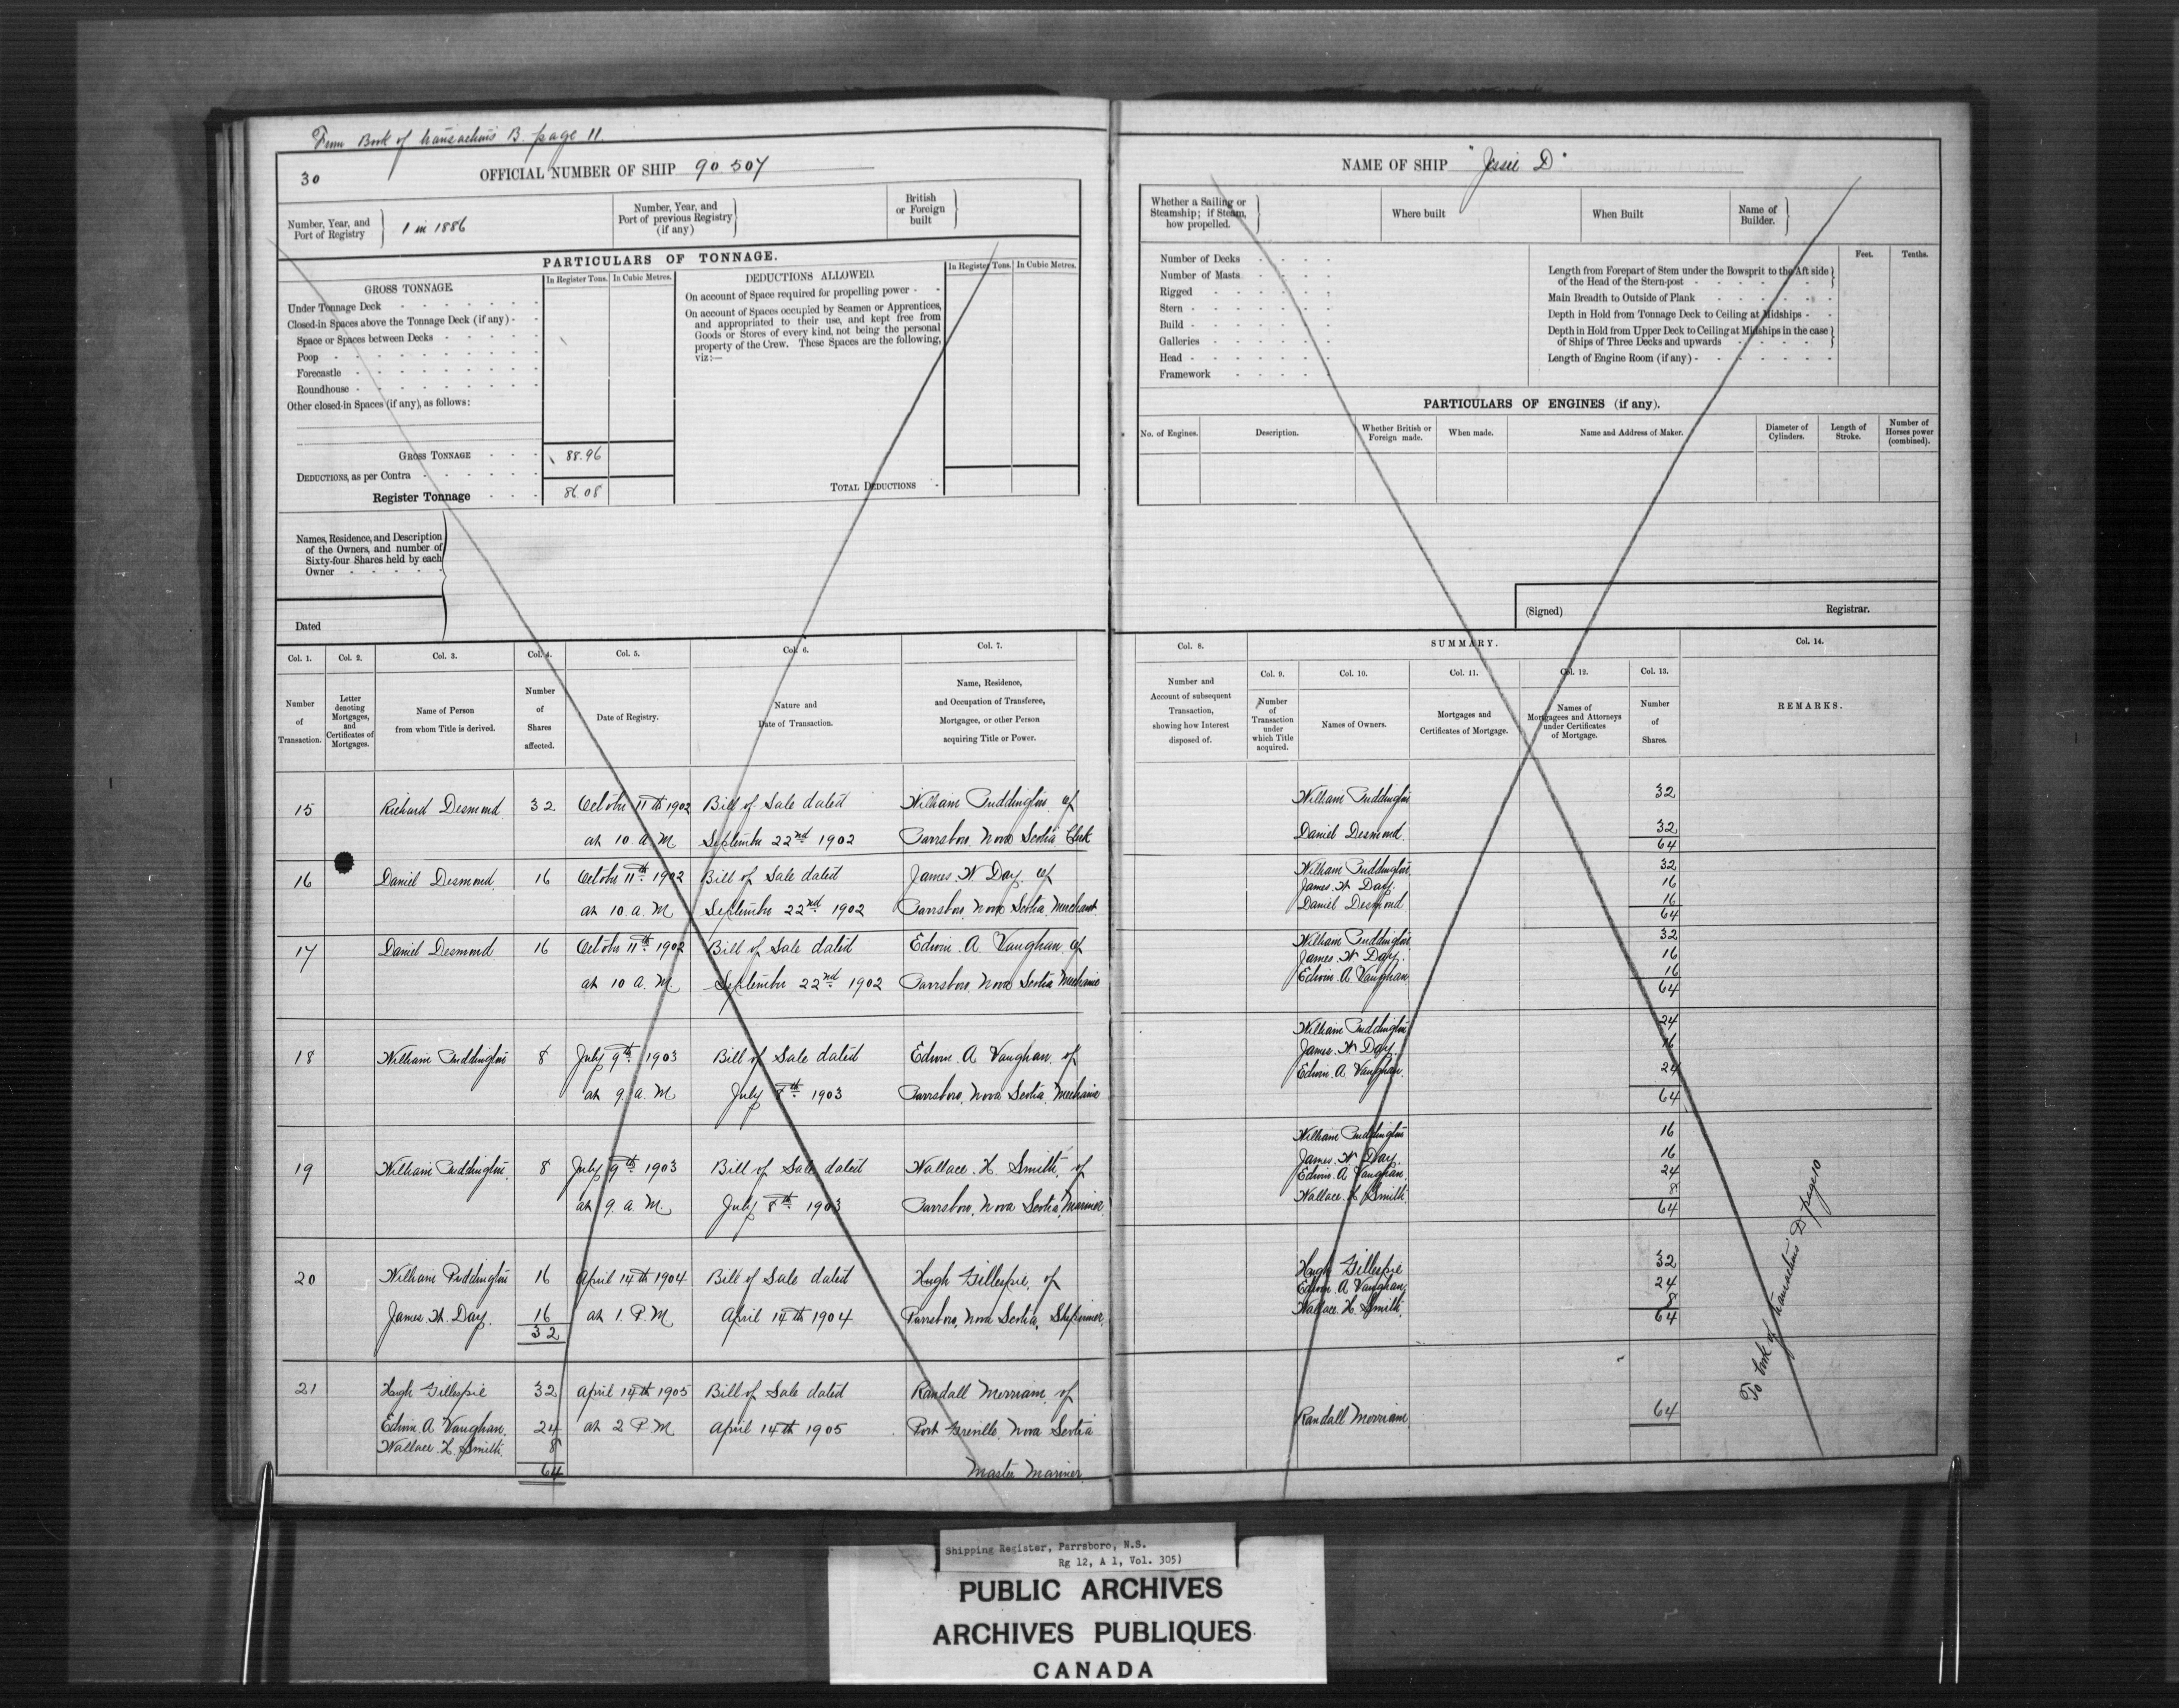 From Book of transactions B. page 11.
30
OFFICIAL NUMBER OF SHIP 90.507
Number, Year, and Port of Registry } 1 in 1886
Number, Year, and Port of previous Registry (if any) }
British or Foreign built }
PARTICULARS OF TONNAGE.
GROSS TONNAGE.
In Register Tons. In Cubic Metres.
Under Tonnage Deck
Closed-in Spaces above the Tonnage Deck (if any)
Space or Spaces between Decks
Poop
Forecastle
Roundhouse
Other closed-in Spaces (if any), as follows:
GROSS TONNAGE 88.96
DEDUCTIONS, as per Contra
Register Tonnage 86.08
DEDUCTIONS ALLOWED.
In Register Tons. In Cubic Metres.
On account of Space required for propelling power
On account of Spaces occupied by Seamen or Apprentices,
and appropriated to their use, and kept free from
Goods or Stores of every kind, not being the personal
property of the Crew. These Spaces are the following,
viz:—
TOTAL DEDUCTIONS
Names, Residence, and Description
of the Owners, and number of
Sixty-four Shares held by each
Owner
Dated
Col. 1. Col. 2. Col. 3. Col. 4. Col. 5. Col. 6. Col. 7.
Number of Transaction.
Letter denoting Mortgages, and Certificates of Mortgages.
Name of Person from whom Title is derived.
Number of Shares affected.
Date of Registry.
Nature and Date of Transaction.
Name, Residence, and Occupation of Transferee, Mortgagee, or other Person acquiring Title or Power.
15 Richard Desmond 32 October 11th 1902 Bill of Sale dated William Puddington of
at 10 a.M September 22nd 1902 Parrsboro, Nova Scotia Clerk
16 Daniel Desmond 16 October 11th 1902 Bill of Sale dated James W Day of
at 10.a.M September 22nd 1902 Parrsboro, Nova Scotia, Merchant
17 Daniel Desmond 16 October 11th 1902 Bill of Sale dated Edwin A Vaughan, of
at 10 a.M. September 22nd 1902 Parrsboro, Nova Scotia Mechanic
18 William Puddington 8 July 9th 1903 Bill of Sale dated Edwin A Vaughan, of
at 9. a.M July 8th 1903 Parrsboro, Nova Scotia, Mechanic
19 William Puddington 8 July 9th 1903 Bill of Sale dated Wallace H. Smith, of
at 9. a.M. July 8th 1903 Parrsboro, Nova Scotia, Mariner
20 William Puddington 16 April 14th 1904 Bill of Sale dated Hugh Gillespie, of
James W. Day. 16 at 1. P.M April 14th 1904 Parrsboro, Nova Scotia,
32
21 Hugh Gillespie 32 April 14th 1905 Bill of Sale dated Randall Merriam, of
Edwin A Vaughan, 24 at 2 P M April 14th 1905 Port Greville, Nova Scotia
Wallace H. Smith. 8
64 Master Mariner.
NAME OF SHIP "Jessie D"
Whether a Sailing or Steamship; if Steam, how propelled. }
Where built
When Built
Name of Builder. }
Number of Decks
Number of Masts
Rigged
Stern
Build
Galleries
Head
Framework
Feet. Tenths.
Length from Forepart of Stem under the Bowsprit to the Aft side
of the Head of the Stern-post
Main Breadth to Outside of Plank
Depth in Hold from Tonnage Deck to Ceiling at Midships
Depth in Hold from Upper Deck to Ceiling at Midships in the case
of Ships of Three Decks and upwards
Length of Engine Room (if any)
PARTICULARS OF ENGINES (if any).
No. of Engines. Description. Whether British or Foreign made. When made. Name and Address of Maker. Diameter of Cylinders. Length of Stroke. Number of Horses power (combined).
(Signed) Registrar.
SUMMARY.
Col. 8. Col. 9. Col. 10. Col. 11. Col. 12. Col. 13. Col. 14.
Number and Account of subsequent Transaction, showing how Interest disposed of.
Number of Transaction under which Title acquired.
Names of Owners.
Mortgages and Certificates of Mortgage.
Names of Mortgagees and Attorneys under Certificates of Mortgage.
Number of Shares.
REMARKS.
William Puddington 32
Daniel Desmond 32
64
William Puddington 32
James W Day. 16
Daniel Desmond 16
64
William Puddington 32
James W Day. 16
Edwin A Vaughan 16
64
William Puddington 24
James W Day. 16
Edwin A Vaughan. 24
64
William Puddington 16
James W Day. 16
Edwin A Vaughan. 24
Wallace H Smith. 8
64
Hugh Gillespie 32
Edwin A Vaughan, 24
Wallace H. Smith, 8
64
Randall Merriam. 64
To book of transactions D page 10
Shipping Register, Parrsboro, N.S.
Rg 12, A 1, Vol. 305)
PUBLIC ARCHIVES
ARCHIVES PUBLIQUES
CANADA